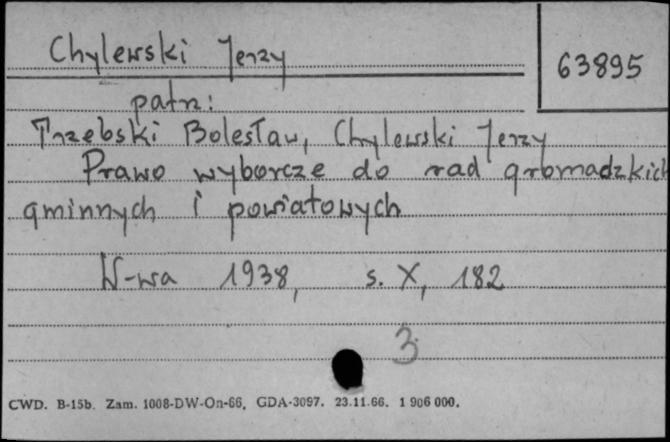 Chylewski Jerzy
63895
patrz:
Trzebski Bolesław, Chylewski Jerzy
Prawo wyborcze do rad gromadzkich
gminnych i powiatowych
W-wa 1938, s. X, 182
3
CWD. B-15b. Zam. 1008-DW-On-66, GDA-3097. 23.11.66. 1 906 000.